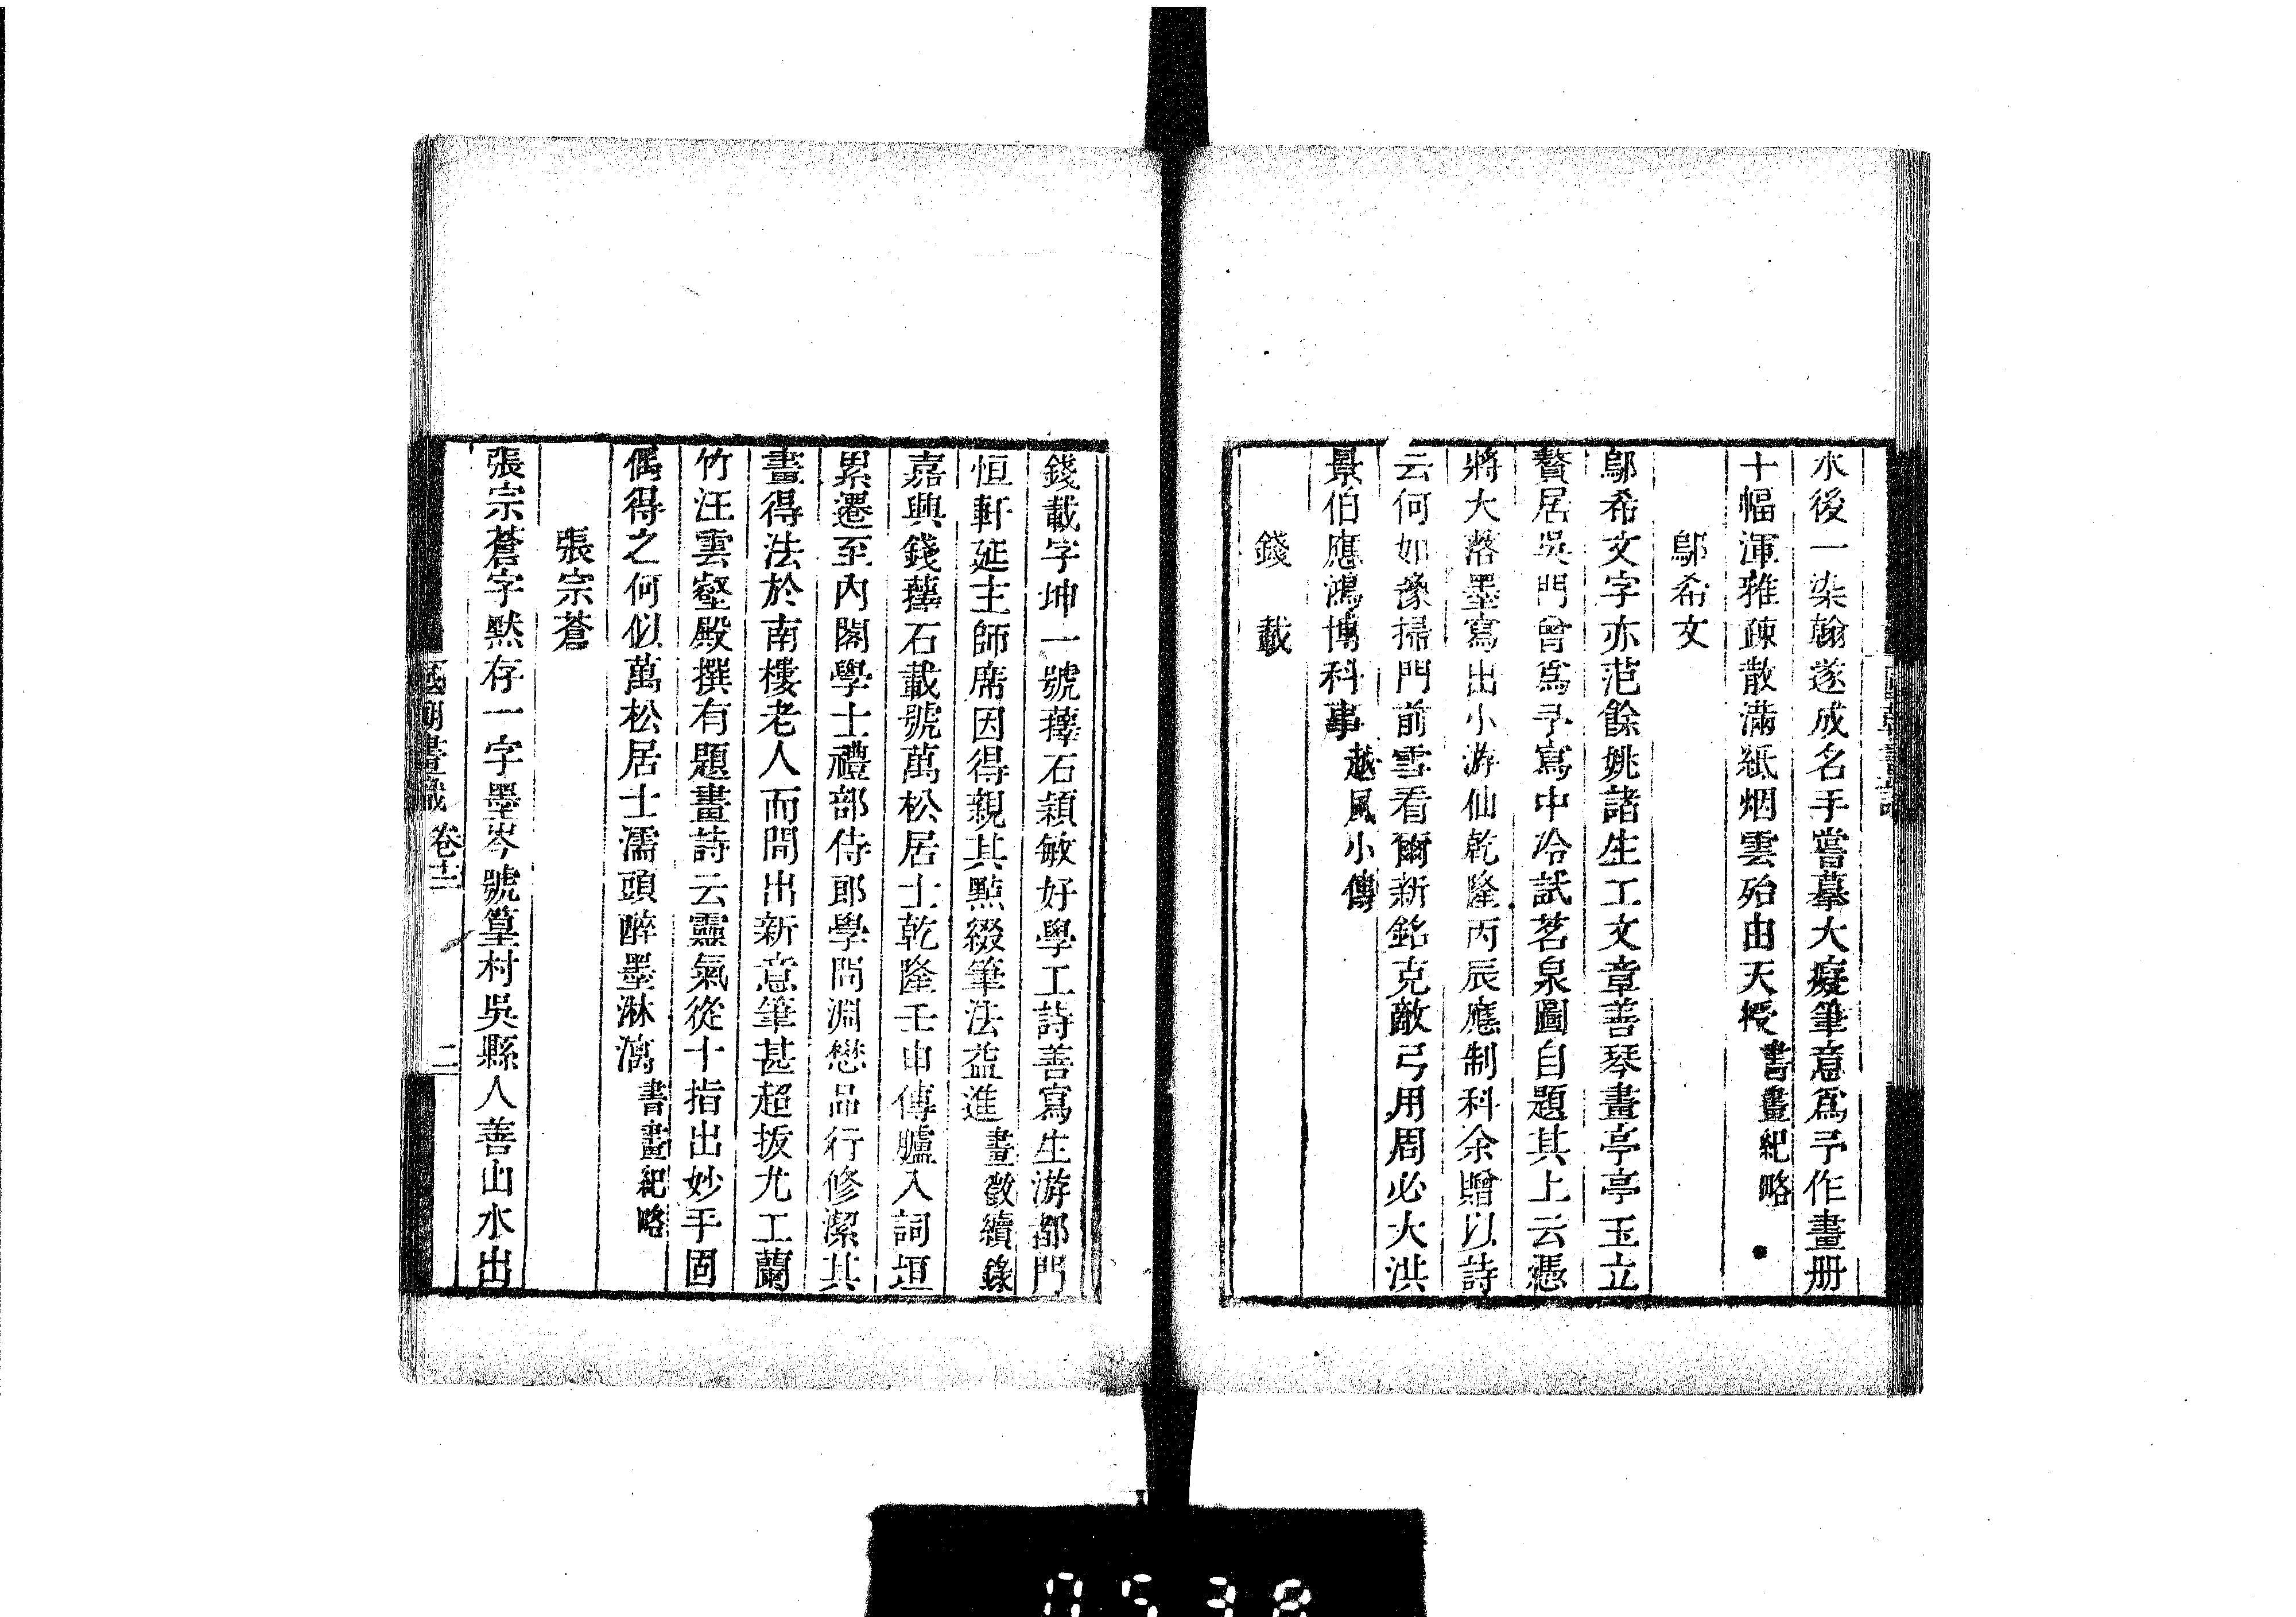 水後一染翰遂成名手嘗摹大癡筆意爲予作畫册
十幅渾雅疎散滿紙烟雲殆由天授書畫紀略
鄔希文
鄔希文字亦范餘姚諸生工文章善琴畫亭亭玉立
贅居吳門曾爲予寫中泠試茗泉圖自題其上云憑
將大落墨寫出小游仙乾隆丙辰應制科余贈以詩
云何如豫掃門前雪看爾新銘克敵弓用周必大洪
景伯應鴻博科事越風小傳
錢載
錢載字坤一號蘀石穎敏好學工詩善寫生游都門
恒軒延主師席因得親其點綴筆法益進畫徵續錄
嘉興錢蘀石載號萬松居士乾隆壬申傳臚入詞垣
累遷至內閣學士禮部侍郎學問淵懋品行修潔其
畫得法於南樓老人而間出新意筆甚超拔尤工蘭
竹汪雲壑殿撰有題畫詩云靈氣從十指出妙乎固
偶得之何似萬松居士濡頭醉墨淋漓書畫紀略
張宗蒼
張宗蒼字默存一字墨岑號篁村吳縣人善山水出
國朝畫識 卷十二 二
0538